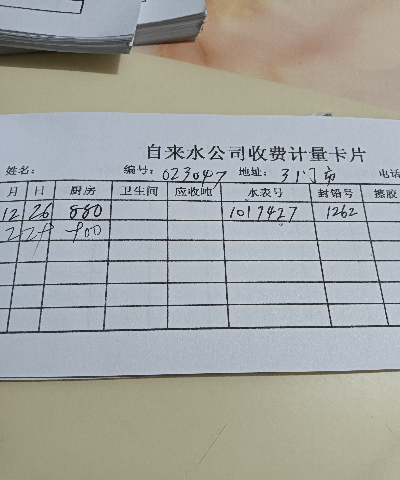 自来水公司收费计量卡片
姓名: 编号: 023047 地址: 3门市 电话
月 日 厨房 卫生间 应收吨 水表号 封铅号 擦胶
12 26 880 1017427 1262
2 29 900